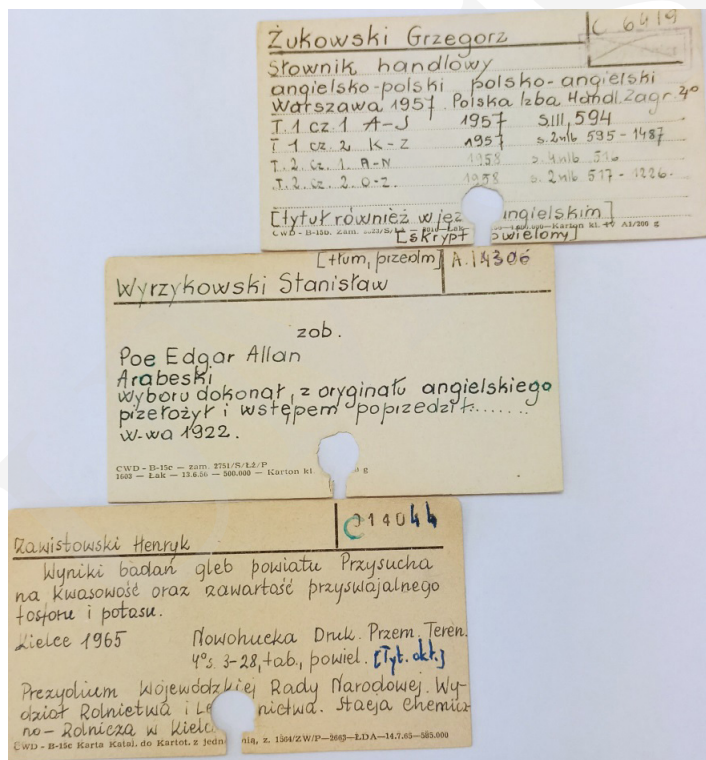 Żukowski Grzegorz C 6419
Słownik handlowy
angielsko-polski polsko-angielski
Warszawa 1957. Polska Izba Handl. Zagr. 4°
T. 1 cz. 1 A-J 1957 s. III, 594
T 1 cz. 2 K-Z 1957 s. 2nlb 595-1487
T. 2. Cz. 1. A-N 1958 s. 4nlb 516
T. 2. Cz. 2. O-Z. 1958 s. 2nlb 517-1226.
[tytuł również w jęz ngielskim]
CWD - B-15b. Zam. Karton kl. A1/200 g
[skrypt owielony]
[tłum, przedm] A. 14306
Wyrzykowski Stanisław
zob.
Poe Edgar Allan
Arabeski
Wyboru dokonał, z oryginału angielskiego
przełożył i wstępem poprzedził.......
W-wa 1922.
CWD - B-15c — zam. 2751/S/ŁŻ/P
1603 — Łak — 13.6.56 — 500.000 — Karton kl g
C 14044
Zawistowski Henryk
Wyniki badań gleb powiatu Przysucha
na kwasowość oraz zawartość przyswajalnego
fosforu i potasu.
Kielce 1965 Nowohucka Druk. Przem. Teren.
4° s. 3-28, tab., powiel. [Tyt. okł.]
Prezydium Wojewódzkiej Rady Narodowej. Wy-
dział Rolnictwa i Le nictwa. Stacja Chemicz
no-Rolnicza w Kielc
CWD - B-15c Karta Katal. do Kartot. z jedn nią, z. 1504/ZW/P—2663—ŁDA—14.7.65—585.000